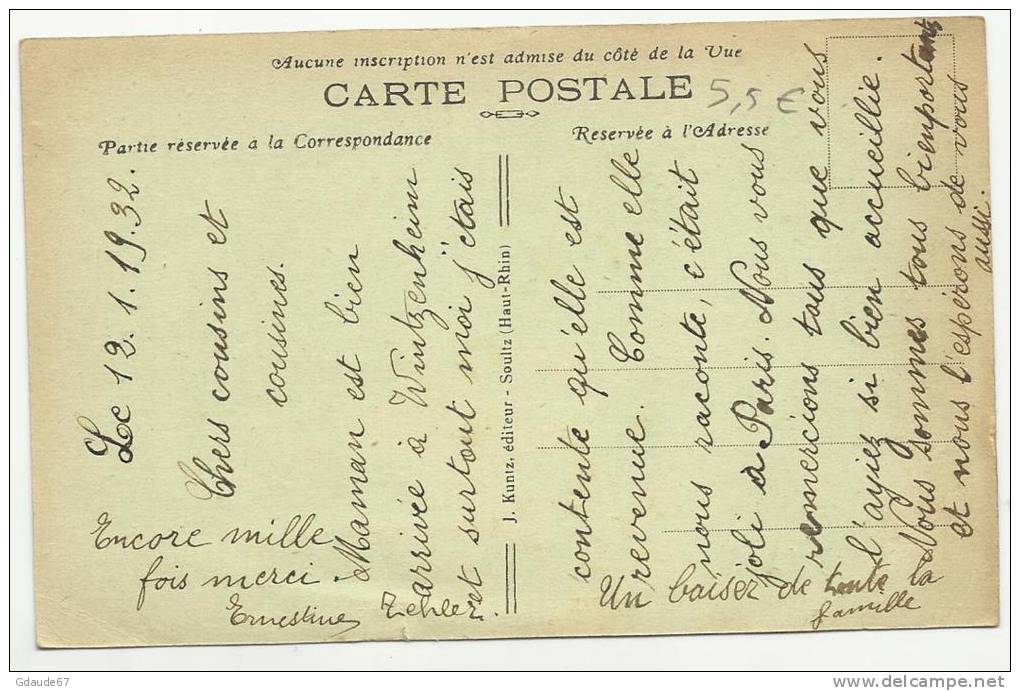 Aucune inscription n'est admise du côté de la Vue
CARTE POSTALE
5,5 €
Partie réservée à la Correspondance
Reservée à l'Adresse
J. Kuntz, éditeur - Soultz (Haut-Rhin)
Le 12.1.1932.
Chers cousins et
cousines.
Maman est bien
arrivée à Wintzenheim
et surtout moi j'étais
contente qu'elle est
revenue. Comme elle
nous raconte, c'était
joli à Paris. Nous vous
remercions tous que vous
l'ayiez si bien accueillie.
Nous sommes tous bienportants
et nous l'espérons de vous
aussi.
Un baiser de toute la
famille
Encore mille
fois merci.
Ernestine Zehler.
Gdaude67
delcampe.net